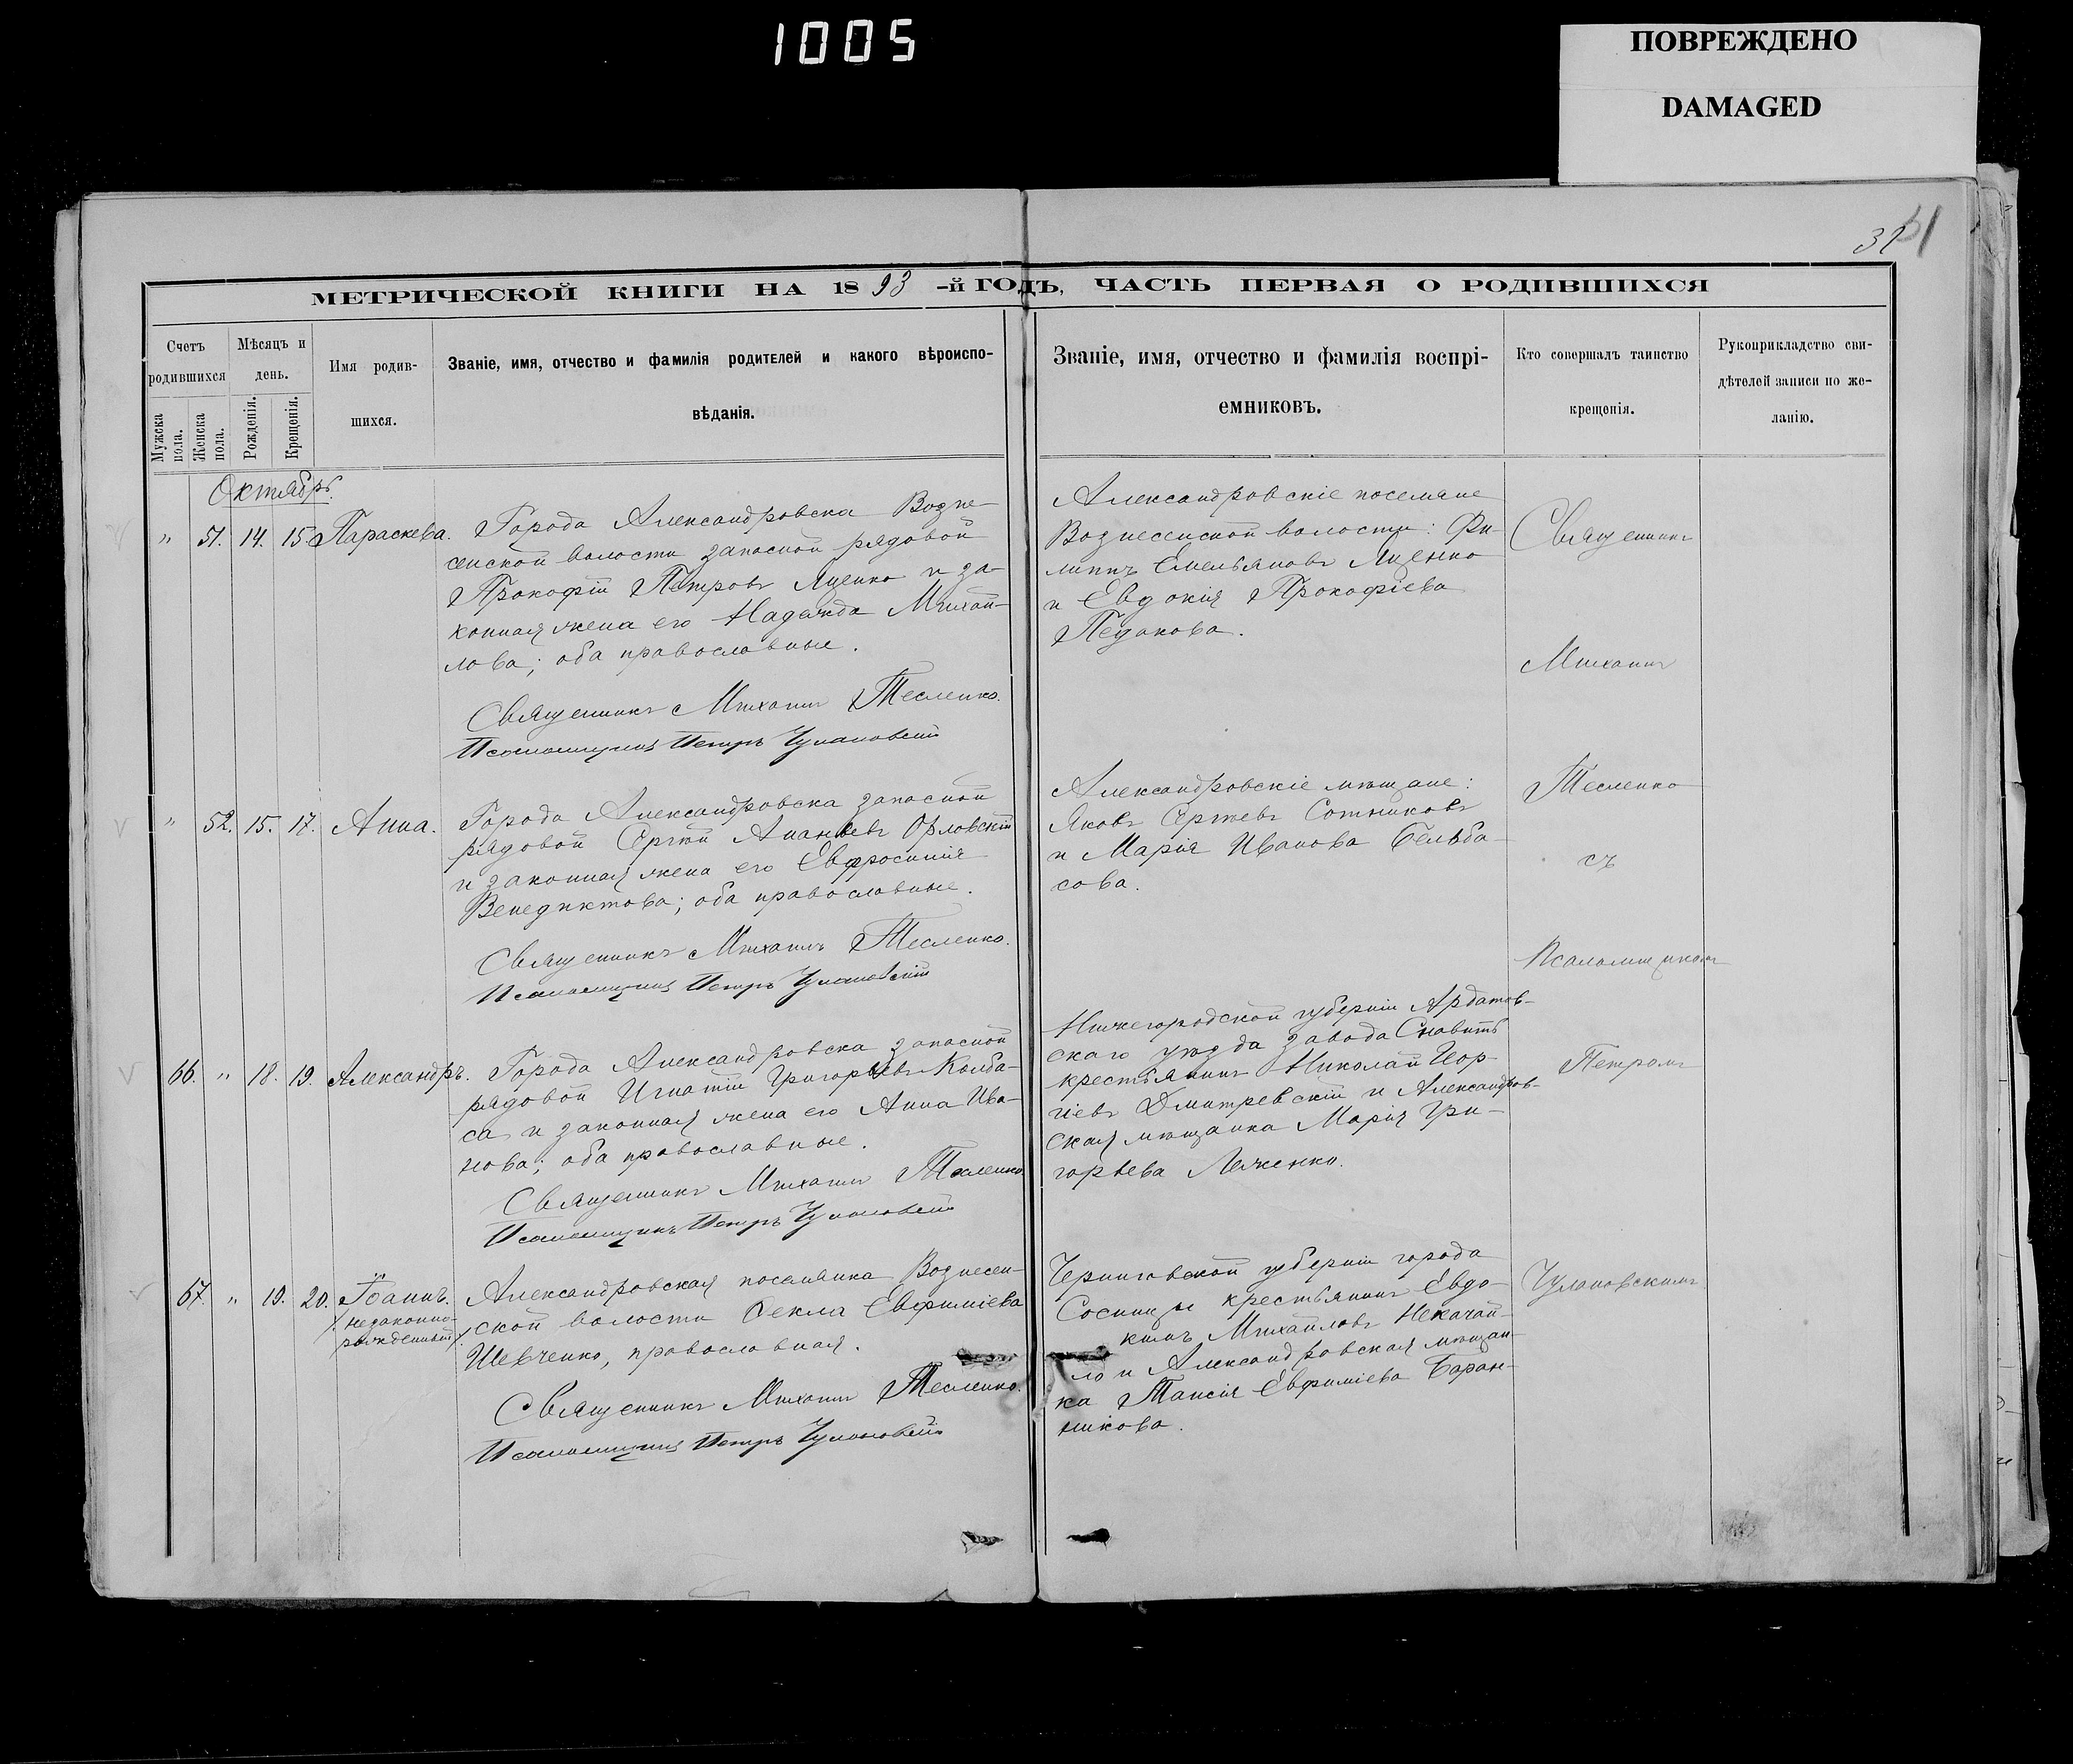 1005
ПОВРЕЖДЕНО
DAMAGED
31
МЕТРИЧЕСКОЙ КНИГИ НА 1893-й ГОДЪ, ЧАСТЬ ПЕРВАЯ О РОДИВШИХСЯ
Счетъ
родившихся
Мужска
пола.
Женска
пола.
Мѣсяцъ и
день.
Рожденія.
Крещенія.
Имя родив-
шихся.
Званіе, имя, отчество и фамилія родителей и какого вѣроиспо-
вѣданія.
Званіе, имя, отчество и фамилія воспрі-
емниковъ.
Кто совершалъ таинство
крещенія.
Рукоприкладство сви-
дѣтелей записи по же-
ланію.
Октябрь.
" 51. 14. 15. Параскева.
Города Александровска Возне-
сенской волости запасной рядовой
Прокофій Петровъ Яценко и за-
конная жена его Надежда Михай-
лова; оба православные.
Священникъ Михаилъ Тесленко.
Псаломщикъ Петръ Чулановскій
Александровскіе поселяне
Вознесенской волости: Фи-
липпъ Емельяновъ Яценко
и Евдокія Прокофіева
Педакова.
" 52. 15. 17. Анна.
Города Александровска запасной
рядовой Сергѣй Ананьевъ Орловскій
и законная жена его Евфросинія
Венедиктова; оба православные.
Священникъ Михаилъ Тесленко.
Псаломщикъ Петръ Чулановскій
Александровскіе мѣщане:
Яковъ Сергѣевъ Сотниковъ
и Марія Иванова Бельба-
сова.
66. " 18. 19. Александръ.
Города Александровска запасной
рядовой Игнатій Григорьевъ Колба-
са и законная жена его Анна Ива-
нова; оба православные.
Священникъ Михаилъ Тесленко
Псаломщикъ Петръ Чулановскій
Нижегородской губерніи Ардатов-
скаго уѣзда завода Сноведь
крестьянинъ Николай Геор-
гіевъ Дмитревскій и Александров-
ская мѣщанка Марія Гри-
горьева Ляженко.
67. " 19. 20. Іоаннъ.
/незаконно-
рожденный/.
Александровская поселянка Вознесен-
ской волости Ѳекла Евфиміева
Шевченко, православная.
Священникъ Михаилъ Тесленко.
Псаломщикъ Петръ Чулановскій
Черниговской губерніи города
Сосницы крестьянинъ Евдо-
кимъ Михайловъ Некачай-
ло и Александровская мѣщан-
ка Таисія Евфиміева Баран-
никова.
Священникъ
Михаилъ
Тесленко
съ
Псаломщикомъ
Петромъ
Чулановскимъ